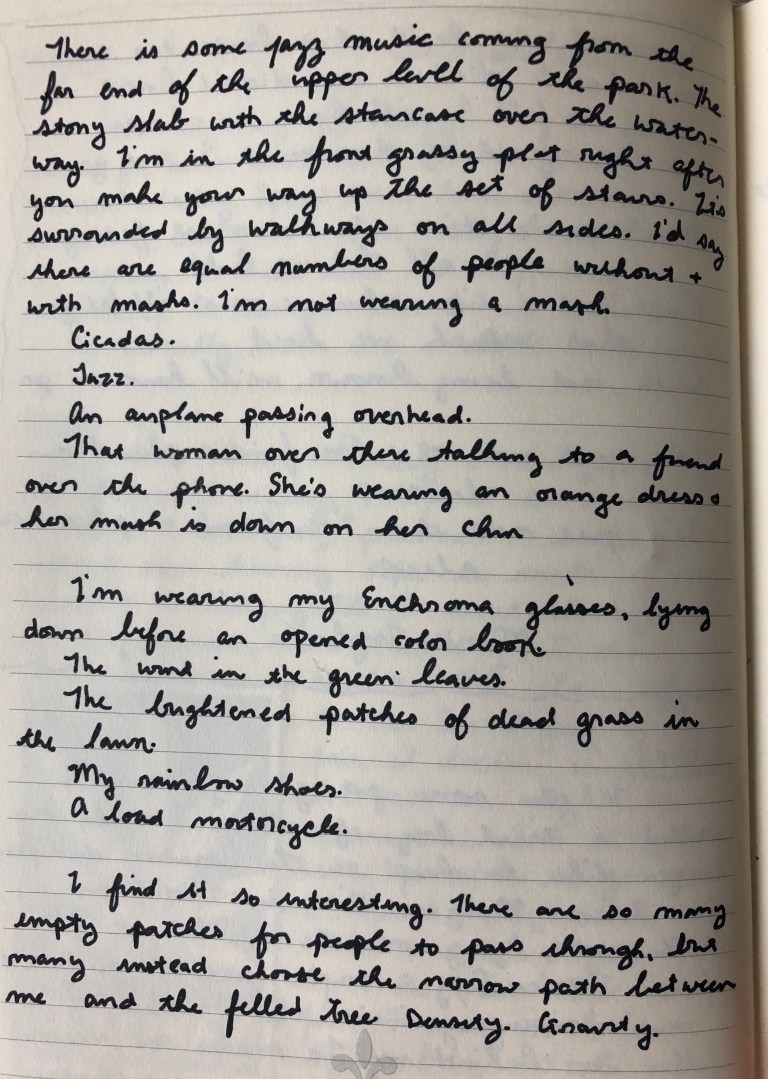 There is some jazz music coming from the
far end of the upper level of the park. The
stony slab with the staircase over the water-
way. I'm in the front grassy plot right after
you make your way up the set of stairs. It's
surrounded by walkways on all sides. I'd say
there are equal numbers of people without +
with masks. I'm not wearing a mask.
Cicadas.
Jazz.
An airplane passing overhead.
That woman over there talking to a friend
over the phone. She's wearing an orange dress &
her mask is down on her chin
I'm wearing my Enchroma glasses, lying
down before an opened color book.
The wind in the green leaves.
The brightened patches of dead grass in
the lawn.
My rainbow shoes.
A loud mortorcycle.
I find it so interesting. There are so many
empty patches for people to pass through, but
many instead choose the narrow path between
me and the felled tree Density. Gravity.